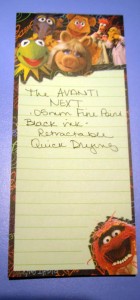 The AVANTI
NEXT
.05mm Fine Point
Black ink -
Retractable
Quick Drying